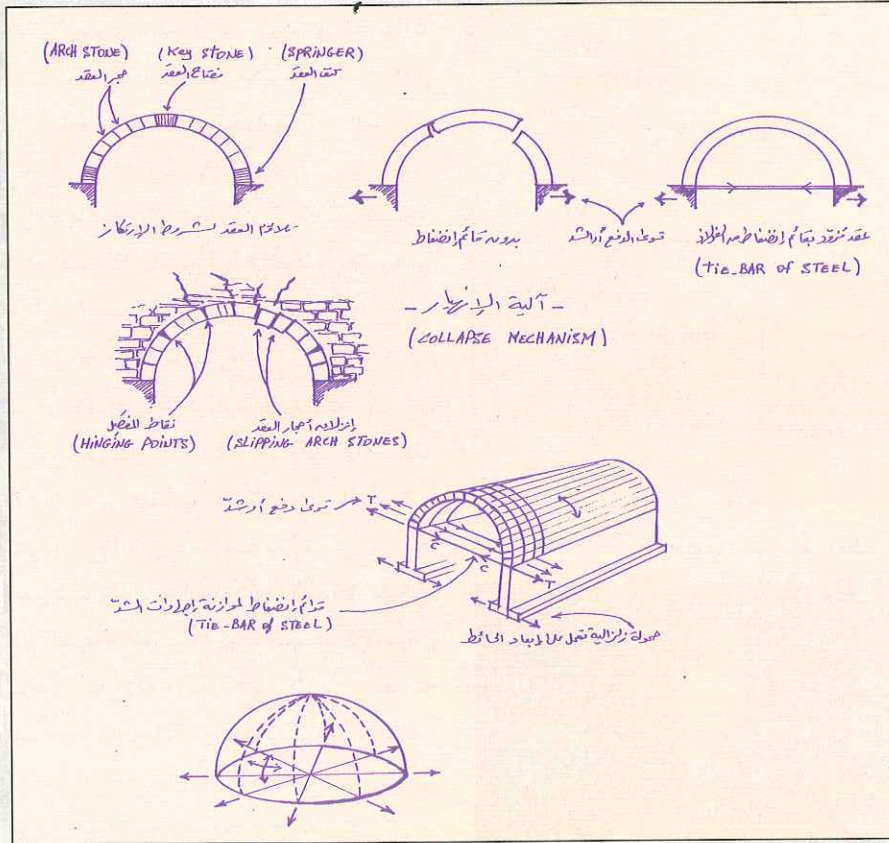 (ARCH STONE) (Key STONE) (SPRINGER)
حجر العقد مفتاح العقد كتف العقد
تلاحم العقد لشروط الإرتكاز
بدون قائم إنضغاط
قوى الدفع أو الشد
عقد مزود بقائم إنضغاط من الفولاذ
(TIE-BAR of STEEL)
- آلية الإنهيار -
(COLLAPSE MECHANISM)
نقاط المفصل
(HINGING POINTS)
إنزلاق أحجار العقد
(SLIPPING ARCH STONES)
قوى دفع أو شدّ
T
C
C
T
قوائم إنضغاط لموازنة إجهادات الشدّ
(TIE-BAR of STEEL)
حمولة زلزالية تعمل على إبعاد الحائط